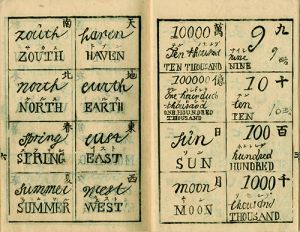 天
haven
HAVEN
地
earth
EARTH
東
east
EAST
西
west
WEST
南
zouth
ZOUTH
北
north
NORTH
春
spring
SPRING
夏
summer
SUMMER
九
9
nine
NINE
十
10
ten
TEN
百
100
hundred
HUNDRED
千
1000
thousand
THOUSAND
萬
10000
Ten thousand
TEN THOUSAND
億
100000
One hundred
thousand
ONE HUNDRED
THOUSAND
日
sun
SUN
月
moon
MOON